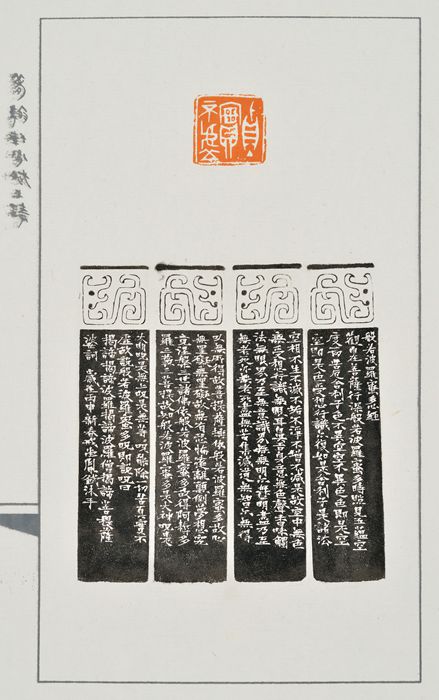 般若波羅蜜多心經
觀自在菩薩行深般若波羅蜜多時照見五蘊皆空
度一切苦厄舍利子色不異空空不異色色即是空
空即是色受想行識亦復如是舍利子是諸法
空相不生不滅不垢不淨不增不減是故空中無色
無受想行識無眼耳鼻舌身意無色聲香味觸
法無眼界乃至無意識界無無明亦無無明盡乃至
無老死亦無老死盡無苦集滅道無智亦無得
以無所得故菩提薩埵依般若波羅蜜多故心
無罣礙無罣礙故無有恐怖遠離顛倒夢想究
竟涅槃三世諸佛依般若波羅蜜多故得阿耨多
羅三藐三菩提故知般若波羅蜜多是大神咒是
大明咒是無上咒是無等等咒能除一切苦真實不
虛故說般若波羅蜜多咒即說咒曰
揭諦揭諦波羅揭諦波羅僧揭諦菩提薩
婆訶 歲在丙申新春 沐手